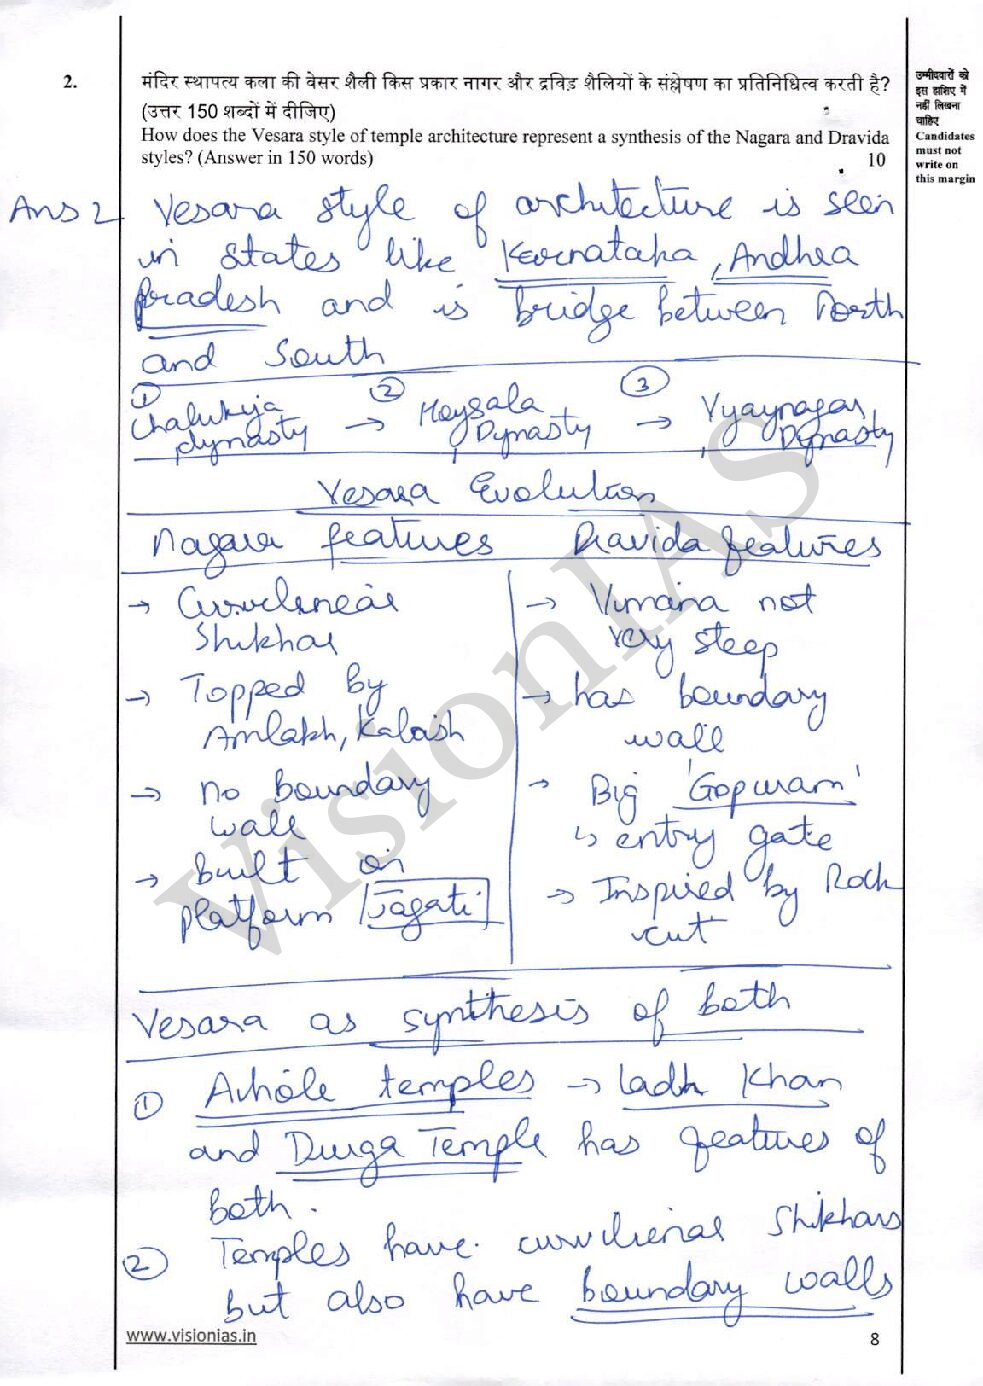 2.
मंदिर स्थापत्य कला की वेसर शैली किस प्रकार नागर और द्रविड़ शैलियों के संश्लेषण का प्रतिनिधित्व करती है?
(उत्तर 150 शब्दों में दीजिए)
How does the Vesara style of temple architecture represent a synthesis of the Nagara and Dravida
styles? (Answer in 150 words) 10
उम्मीदवारों को
इस हाशिए में
नहीं लिखना
चाहिए
Candidates
must not
write on
this margin
Ans 2 Vesara style of architecture is seen
in states like Karnataka, Andhra
Pradesh and is bridge between North
and South
① Chalukya dynasty → ② Hoysala Dynasty → ③ Vijaynagar Dynasty
Vesara Evolution
Nagara features Dravida features
→ Curvclinear
Shikhar
→ Topped by
Amlakh, Kalash
→ No boundary
wall
→ Built on
platform Jagati
→ Vimana not
very steep
→ has boundary
wall
→ Big 'Gopuram'
↳ entry gate
→ Inspired by Rock
cut
Vesara as synthesis of both
① Aihole temples → Ladh Khan
and Durga Temple has features of
both.
② Temples have curvilienal Shikhars
but also have boundary walls
VisionIAS
www.visionias.in
8